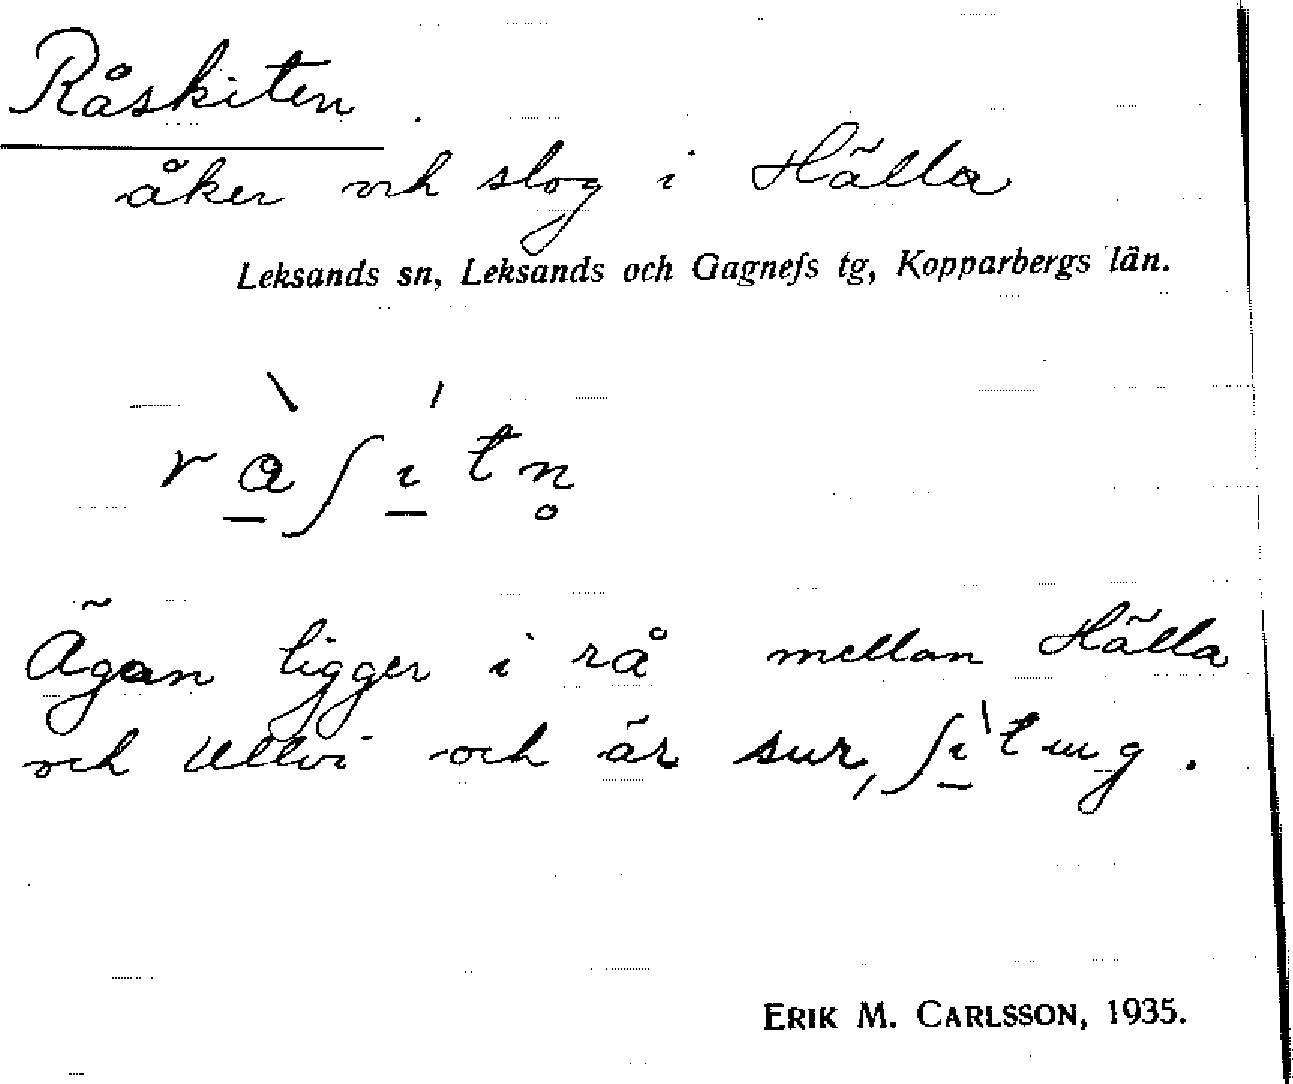 Råskiten.
åker och slog i Hälla
Leksands sn, Leksands och Gagnefs tg, Kopparbergs län.
rɑ̀ʃítn̥
Ägan ligger i rå mellan Hälla
och Ullvi och är sur,
ERIK M. CARLSSON, 1935.